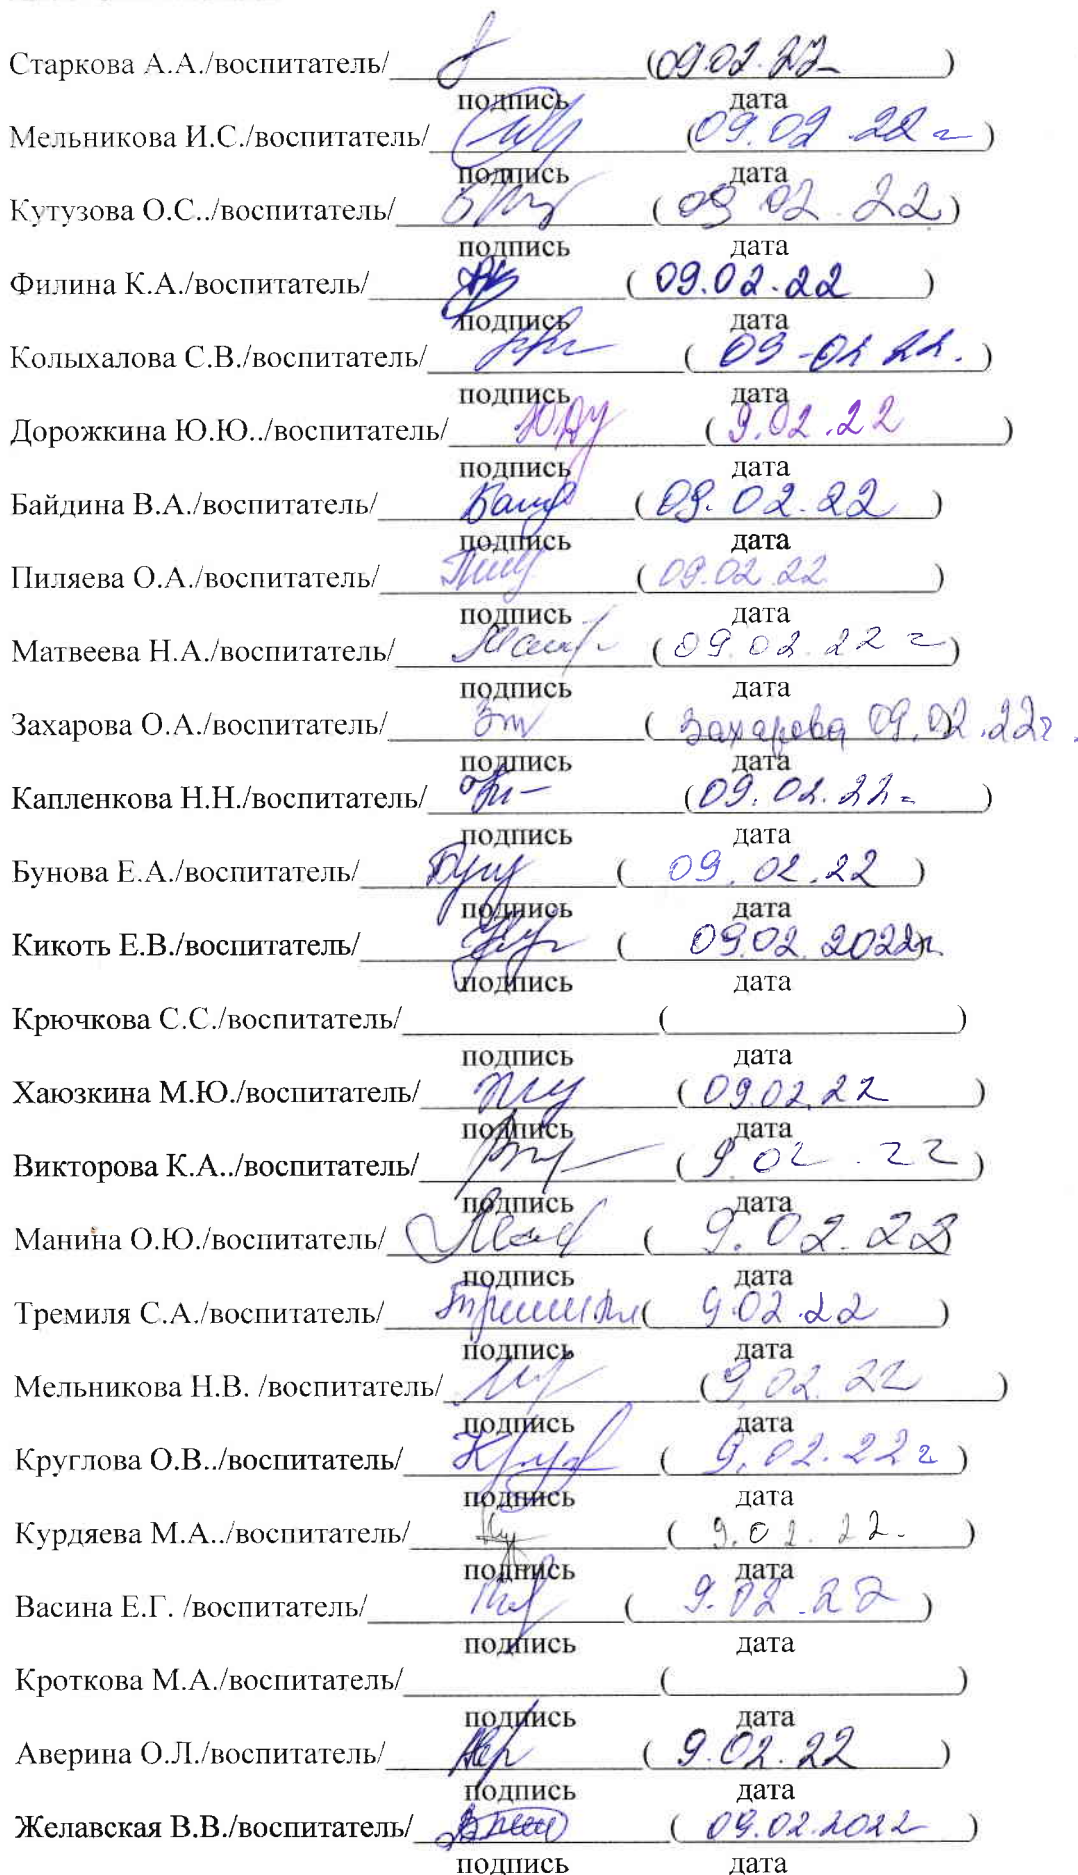 Старкова А.А./воспитатель/ (09.02.22)
подпись дата
Мельникова И.С./воспитатель/ (09.02.22 г)
подпись дата
Кутузова О.С../воспитатель/ (09 02.22)
подпись дата
Филина К.А./воспитатель/ (09.02.22)
подпись дата
Колыхалова С.В./воспитатель/ (09-02 22.)
подпись дата
Дорожкина Ю.Ю../воспитатель/ (9.02.22)
подпись дата
Байдина В.А./воспитатель/ (09.02.22)
подпись дата
Пиляева О.А./воспитатель/ (09.02.22)
подпись дата
Матвеева Н.А./воспитатель/ (09.02.22 г)
подпись дата
Захарова О.А./воспитатель/ (Захарова 09.02.22г.
подпись дата
Капленкова Н.Н./воспитатель/ (09.02.22г)
подпись дата
Бунова Е.А./воспитатель/ (09.02.22)
подпись дата
Кикоть Е.В./воспитатель/ (09.02.2022г)
подпись дата
Крючкова С.С./воспитатель/ ( )
подпись дата
Хаюзкина М.Ю./воспитатель/ (09.02.22)
подпись дата
Викторова К.А../воспитатель/ (9.02.22)
подпись дата
Манина О.Ю./воспитатель/ (9.02.22)
подпись дата
Тремиля С.А./воспитатель/ (9.02.22)
подпись дата
Мельникова Н.В. /воспитатель/ (9.02.22)
подпись дата
Круглова О.В../воспитатель/ (9.02.22 г)
подпись дата
Курдяева М.А../воспитатель/ (9.02.22.)
подпись дата
Васина Е.Г. /воспитатель/ (9.02.22)
подпись дата
Кроткова М.А./воспитатель/ ( )
подпись дата
Аверина О.Л./воспитатель/ (9.02.22)
подпись дата
Желавская В.В./воспитатель/ (09.02.2022)
подпись дата